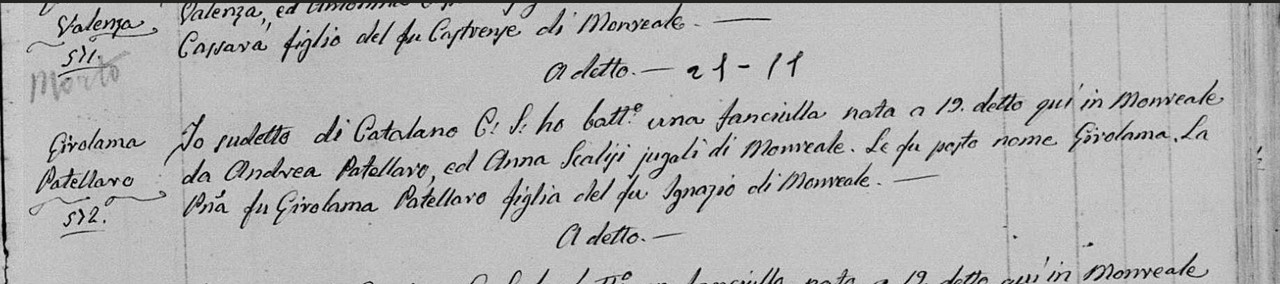 Valenza
571.
Morto
Valenza, ed
Cassarà figlio del fu Castrenze di Monreale. —
A detto. — 21 - 11
Girolama
Patellaro
572.
Io sudetto di Catalano C: S: ho batt.º una fanciulla nata a 19. detto quì in Monreale
da Andrea Patellaro, ed Anna Scalisi jugali di Monreale. Le fu posto nome Girolama. La
Pñà fu Girolama Patellaro figlia del fu Ignazio di Monreale. —
A detto. —
fanciulla nata a 19 detto quì in Monreale